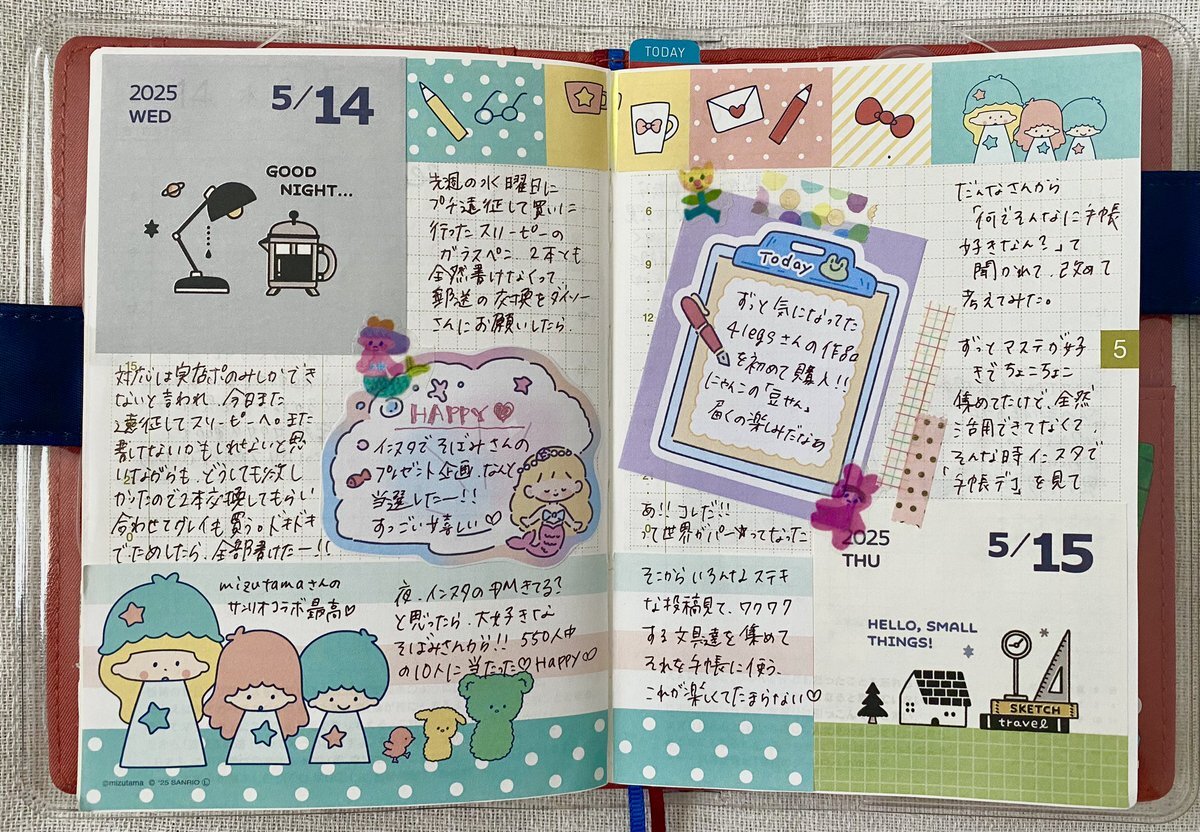 TODAY
2025
WED
5/14
GOOD
NIGHT...
先週の水曜日に
プチ遠征して買いに
行ったスリーピーの
ガラスペン、2本とも
全然書けなくって、
郵送の交換をダイソー
さんにお願いしたら
対応は実店舗のみしかでき
ないと言われ、今日また
遠征してスリーピーへ。また
書けないかもしれないと思
いながらも、どうしても欲し
かったので2本交換してもらい
合わせてグレイも買う。ドキドキ
でためしたら、全部書けたー!!
HAPPY♡
インスタでそばみさんの
プレゼント企画、なんと
当選したー!!
すっごい嬉しい♡
mizutamaさんの
サンリオコラボ最高♡
夜、インスタのDMきてる?
と思ったら、大好きな
そばみさんから!! 550人中
の10人に当たった♡Happy♡
©mizutama © '25 SANRIO Ⓛ
6
9
12
Today
ずっと気になってた
4legsさんの作品
を初めて購入!!
にゃんこの「豆せん」
届くの楽しみだなぁ
だんなさんから
「何でそんなに手帳
好きなん?」って
聞かれて、改めて
考えてみた。
ずっとマステが好
きでちょこちょこ
集めてたけど、全然
活用できてなくて、
そんな時インスタで
「手帳デコ」を見て
5
あ!!コレだ!!
って世界がパーッってなった
そこからいろんなステキ
な投稿見て、ワクワク
する文具達を集めて
それを手帳に使う、
これが楽しくてたまらない♡
2025
THU
5/15
HELLO, SMALL
THINGS!
SKETCH
travel